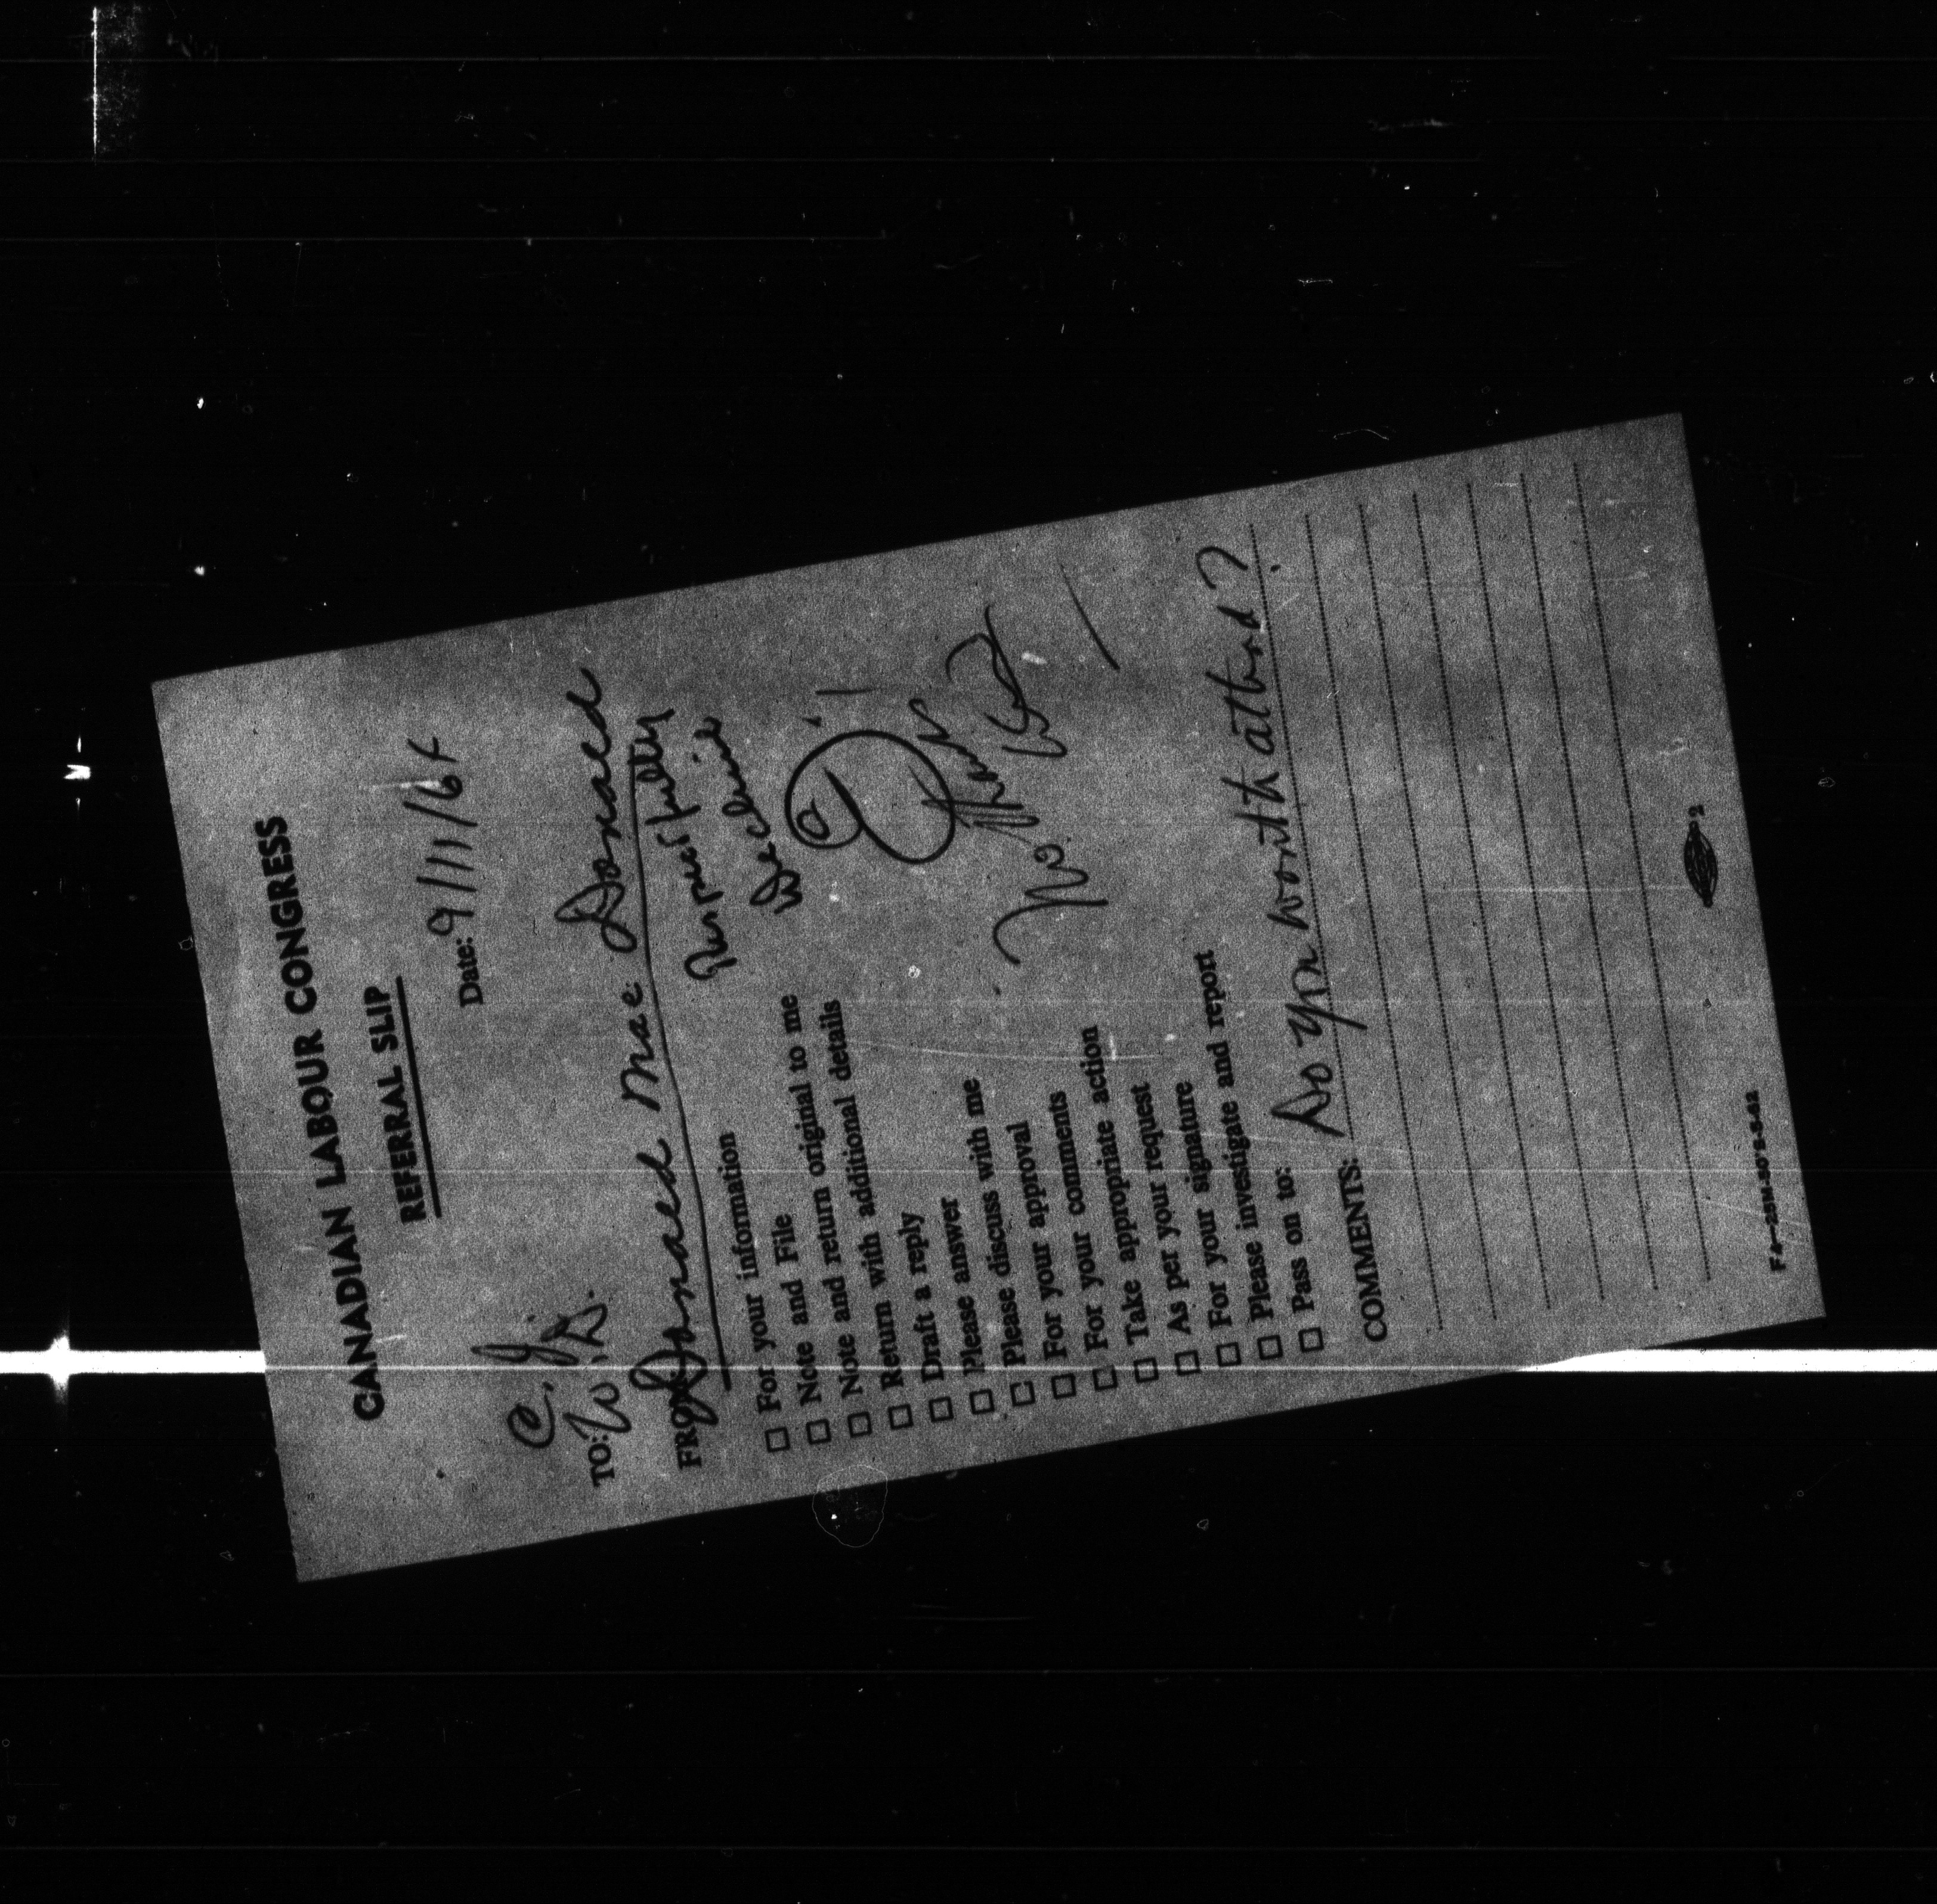 CANADIAN LABOUR CONGRESS
REFERRAL SLIP
Date: 9/11/64
C. J.
TO: W. D.
FROM: Donald Mac Donald
Respectfully
Decline
☐ For your information
☐ Note and File
☐ Note and return original to me
☐ Return with additional details
☐ Draft a reply
☐ Please answer
☐ Please discuss with me
☐ For your approval
☐ For your comments
☐ For your appropriate action
☐ Take appropriate request
☐ As per your signature
☐ For your investigate and report
☐ Please
☐ Pass on to:
No.
COMMENTS: Do you want to attend?
2